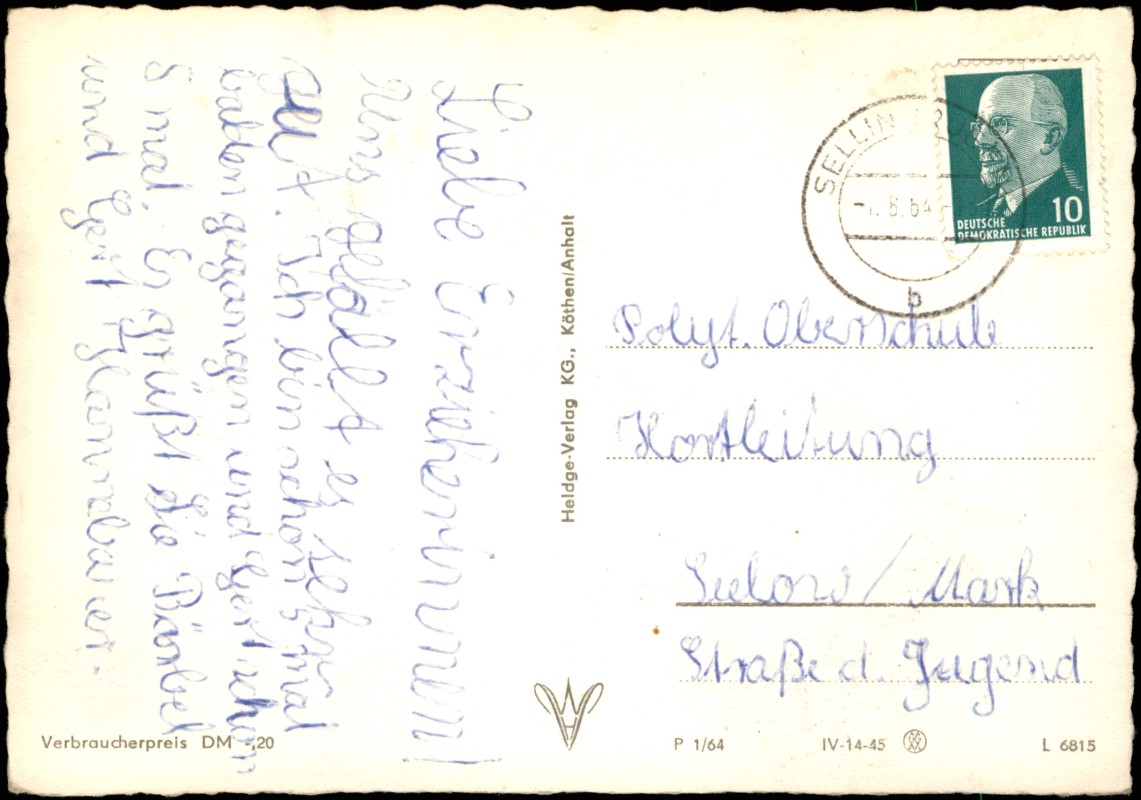 Liebe Erzieherinnen!
Uns gefällt es sehr
gut. Ich bin schon 5 mal
baden gegangen und Gert schon
5 mal. Es grüßt Sie Bärbel
und Gert Hannebauer.
Heldge-Verlag KG., Köthen/Anhalt
SELLIN (RÜG
8.64
b
10
DEUTSCHE
DEMOKRATISCHE REPUBLIK
Polyt. Oberschule
Hortleitung
Seelow/Mark
Straße d. Jugend
Verbraucherpreis DM -,20
P 1/64
IV-14-45
L 6815